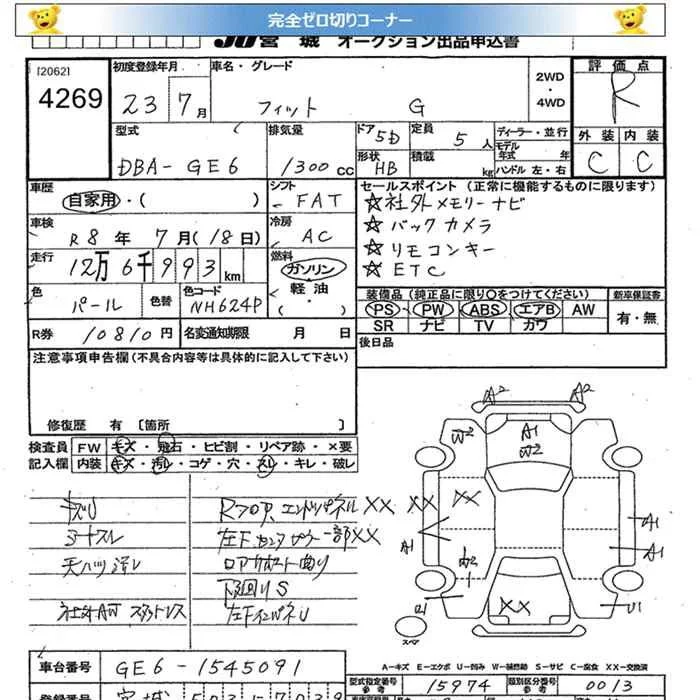 完全ゼロ切りコーナー
JU宮城 オークション出品申込書
[2062]
4269
初度登録年月
23 7月
車名・グレード
フィット G
2WD・4WD
評価点
R
外装 内装
C C
型式
DBA-GE6
排気量
1300cc
ドア 5D
形状 HB
定員 5人
積載 kg
ディーラー・並行
モデル年式 年
ハンドル 左・右
車歴
自家用・( )
シフト
FAT
車検
R8年 7月(18日)
冷房
AC
走行
12万6千993km
燃料
ガソリン
軽油
・( )
色
パール
色替
色コード
NH624P
R券 10810円
名変通知期限 月 日
セールスポイント (正常に機能するものに限ります)
☆社外メモリーナビ
☆バックカメラ
☆リモコンキー
☆ETC
装備品(純正品に限り○をつけてください)
PS・PW・ABS・エアB・AW
SR ナビ TV カワ
新車保証書
有・無
後日品
注意事項申告欄(不具合内容等は具体的に記入して下さい)
修復歴 有 [箇所 ]
検査員記入欄
FW キズ・飛石・ヒビ割・リペア跡・×要
内装 キズ・汚レ・コゲ・穴・スレ・キレ・破レ
キズU
シートスレ
天ハリ汚レ
社外AW スタットレス
Rフロア、エンドパネルXX
左下センタピラー一部XX
ロアサポート曲り
下廻りS
左下インパネU
A2 A2
W2
A1
W2
XX
XX
A1
A1
A1
U1
XX
U1
スペア
A-キズ E-エクボ U-凹み W-補修跡 S-サビ C-腐食 XX-交換済
車台番号
GE6-1545091
型式指定番号 参考
15974
類別区分番号 参考
0013
登録番号
宮城